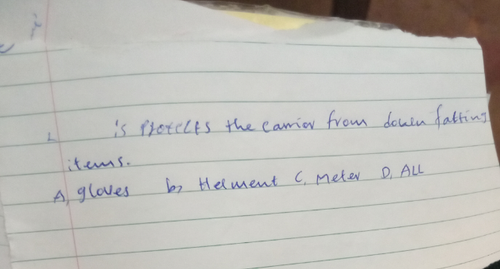 1. is protects the carrior from down falling
items.
A, gloves b, Helment C, Meter D, ALL